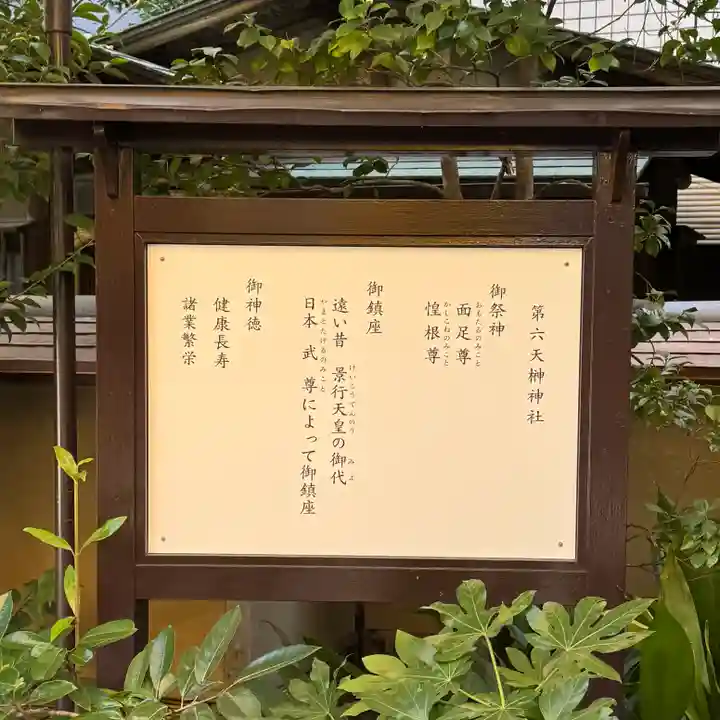 第六天榊神社
御祭神
面足尊
おもたるのみこと
惶根尊
かしこねのみこと
御鎮座
遠い昔 景行天皇の御代
けいこうてんのう
みよ
日本 武 尊によって御鎮座
やまとたけるのみこと
御神徳
健康長寿
諸業繁栄